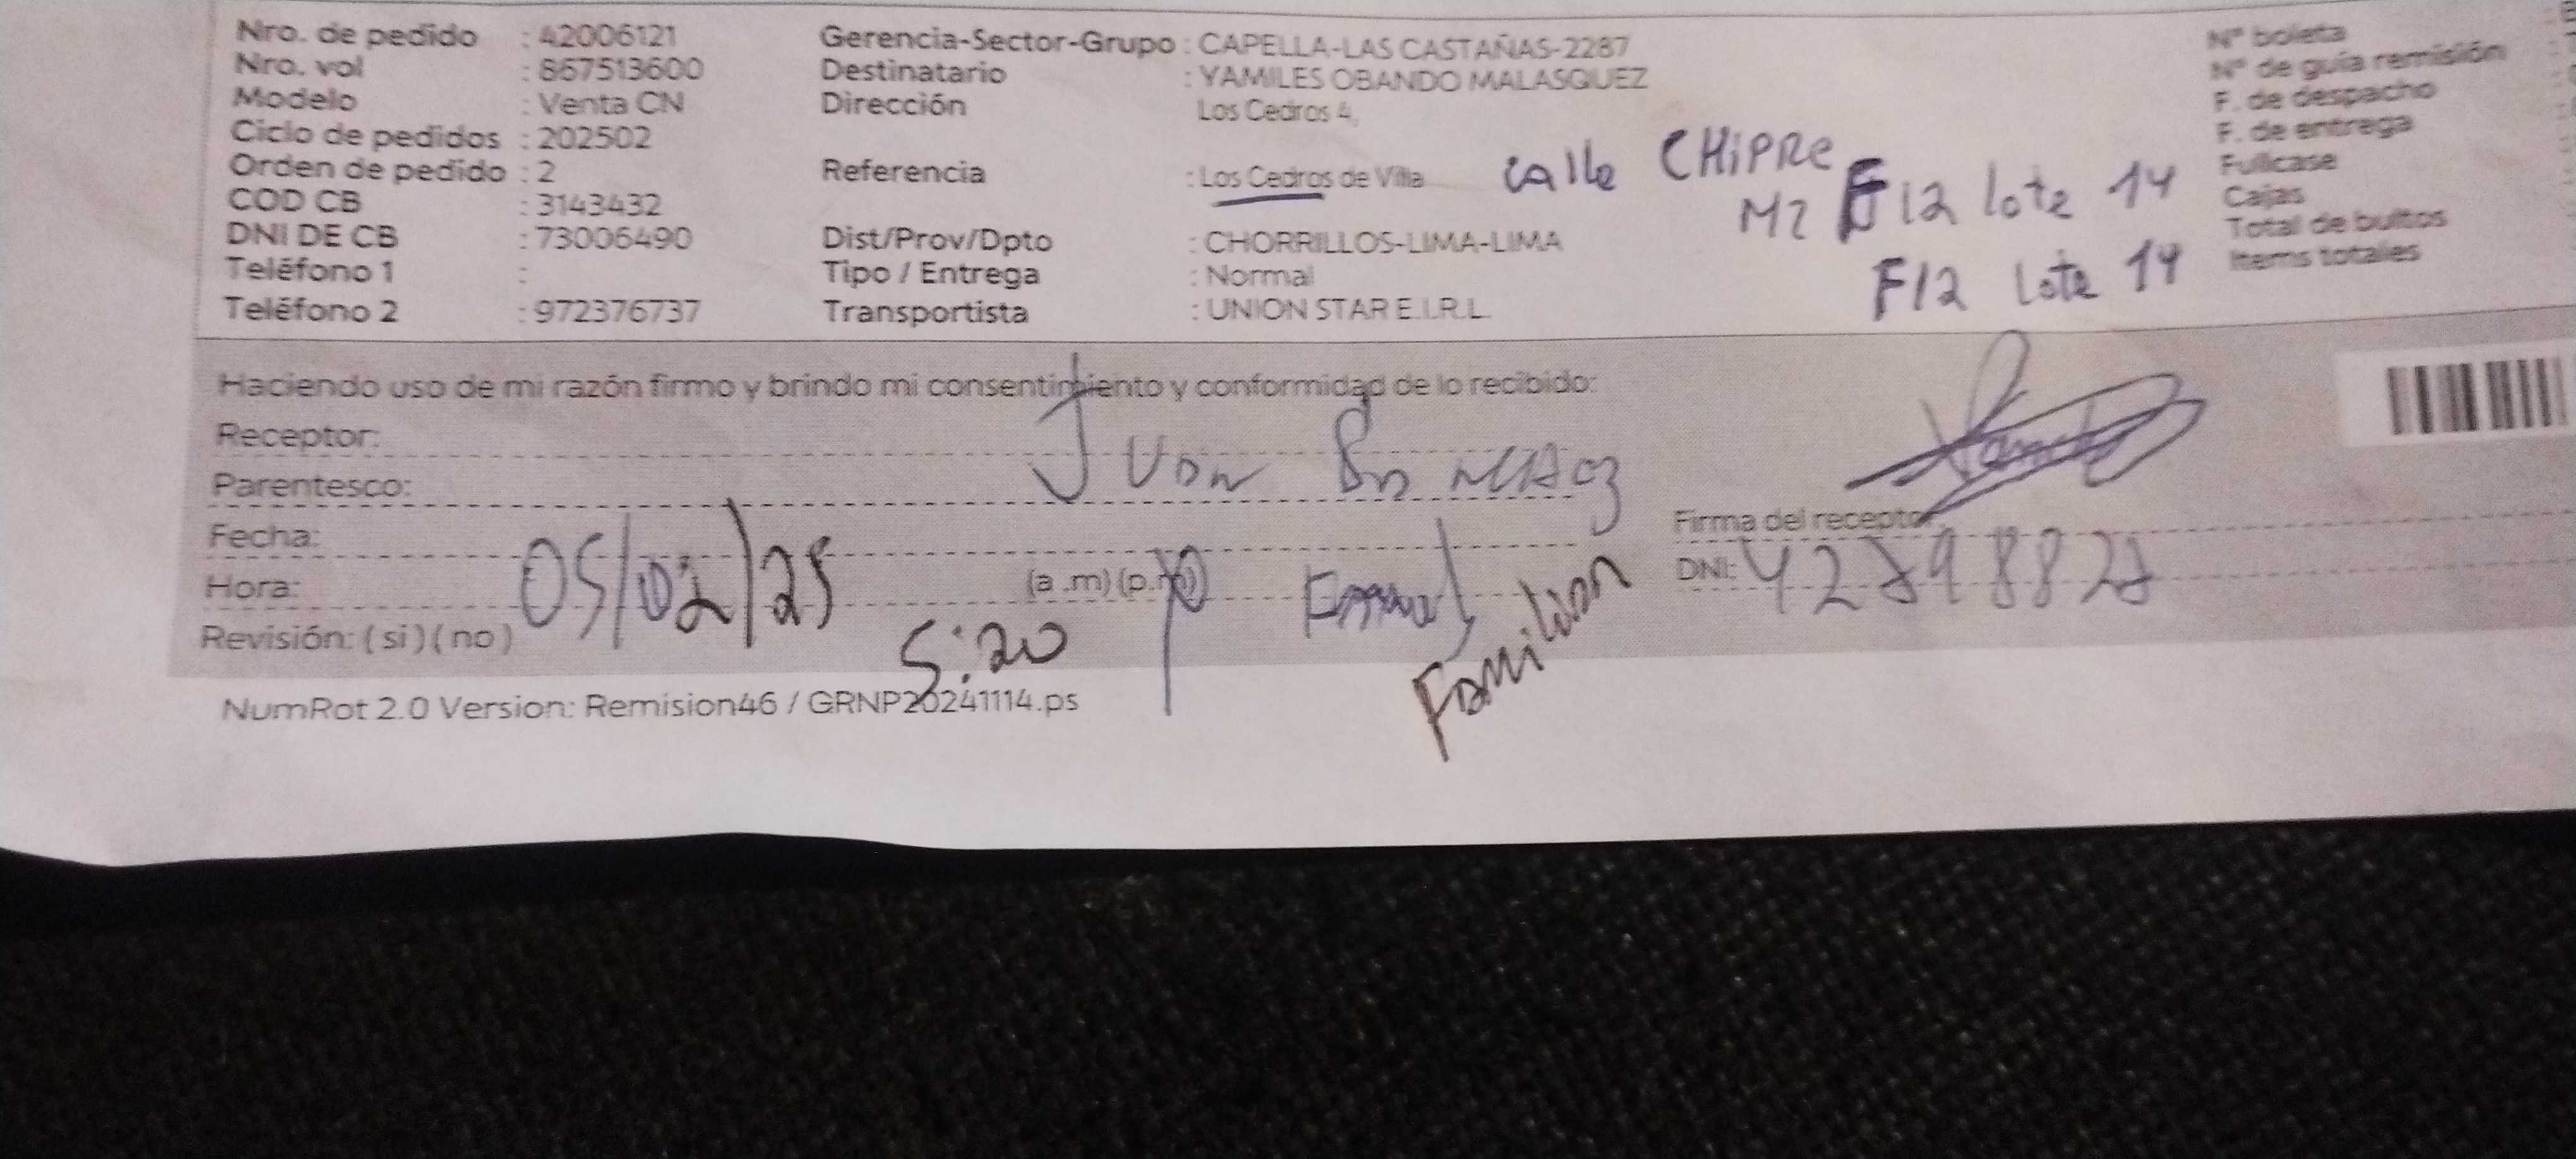 Nro. de pedido : 42006121
Nro. vol : 867513600
Modelo : Venta CN
Ciclo de pedidos : 202502
Orden de pedido : 2
COD CB : 3143432
DNI DE CB : 73006490
Teléfono 1 :
Teléfono 2 : 972376737
Gerencia-Sector-Grupo : CAPELLA-LAS CASTAÑAS-2287
Destinatario : YAMILES OBANDO MALASQUEZ
Dirección Los Cedros 4,
Referencia : Los Cedros de Villa
Dist/Prov/Dpto : CHORRILLOS-LIMA-LIMA
Tipo / Entrega : Normal
Transportista : UNION STAR E.I.R.L.
calle CHIPRE
MZ F12 lote 14
F12 lote 14
N° boleta
N° de guía remisión
F. de despacho
F. de entrega
Fullcase
Cajas
Total de bultos
Items totales
Haciendo uso de mi razón firmo y brindo mi consentimiento y conformidad de lo recibido:
Receptor: Juan
Parentesco:
Fecha: 05/02/25
Hora: (a .m) (p.m) 5:20
Familiar
Revisión: ( si ) ( no )
Firma del receptor
DNI:
NumRot 2.0 Version: Remision46 / GRNP20241114.ps